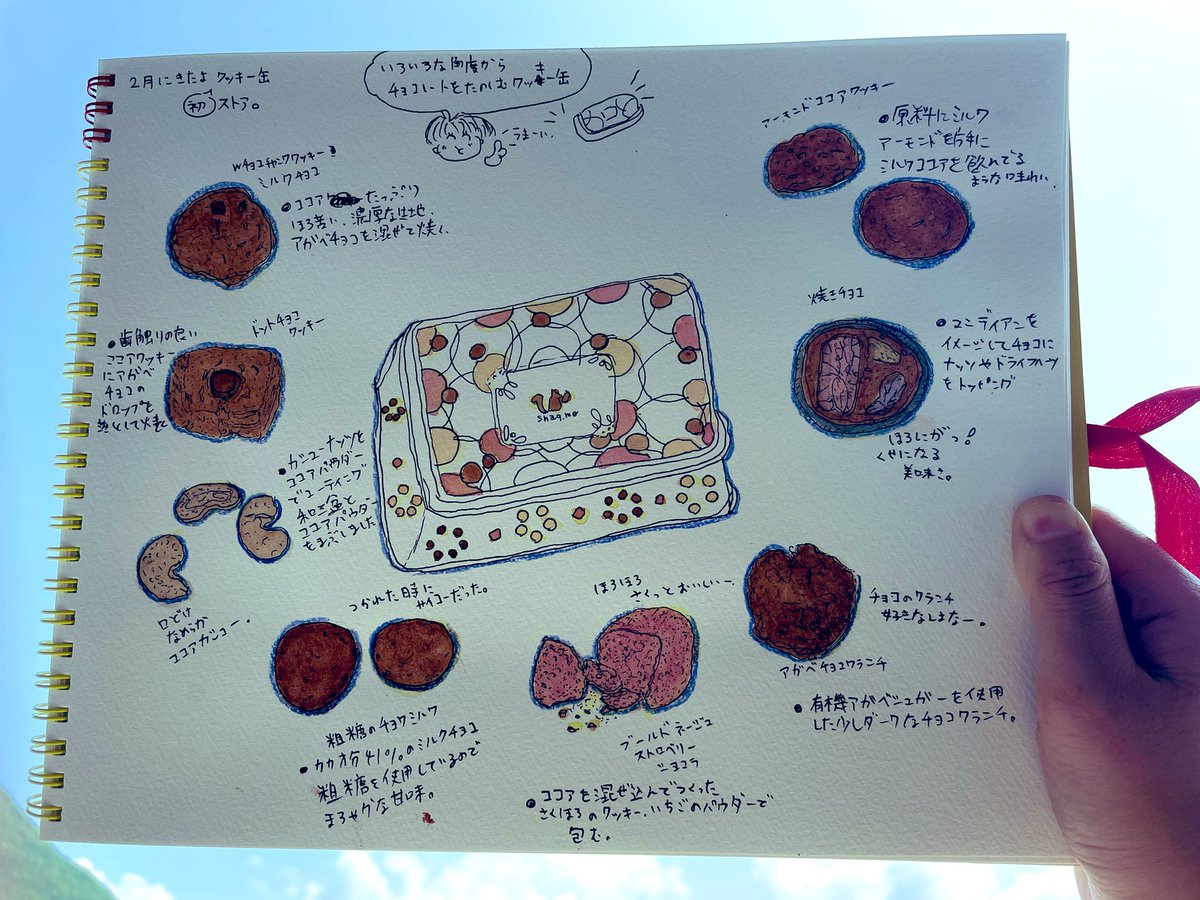 2月にきたよ クッキー缶
初 ストア。
いろいろな角度から
チョコレートをたのしむクッキー缶
うまーい。
Wチョコチャンククッキー
ミルクチョコ
●ココアたっっぷり
ほろ苦い、濃厚な生地、
アガベチョコを混ぜて焼く、
アーモンドココアクッキー
●原料にミルク
アーモンドを片手に
ミルクココアを飲んでる
ような味わい。
ドットチョコ
クッキー
●歯触りの良い
ココアクッキー
にアガベ
チョコの
ドロップを
落として焼く
焼きチョコ
●マンディアンを
イメージしてチョコに
ナッツやドライフルーツ
をトッピング
ほろにがっ!
くせになる
美味さ。
●カシューナッツを
ココアパウダー
でコーティング
和三盆と
ココアパウダー
をまぶしました
snaq.me
口どけ
なめらか
ココアカシュー。
つかれた時に
サイコーだった。
粗糖のチョコミルク
●カカオ分41%のミルクチョコ
粗糖を使用しているので
まろやかな甘味。
ほろほろ
さくっとおいしいー
ブールドネージュ
ストロベリー
ショコラ
●ココアを混ぜ込んでつくった
さくほろのクッキー、いちごのパウダーで
包む。
チョコのクランチ
好きなしまなー。
アガベチョコクランチ
●有機アガベシュガーを使用
した少しダークなチョコクランチ。